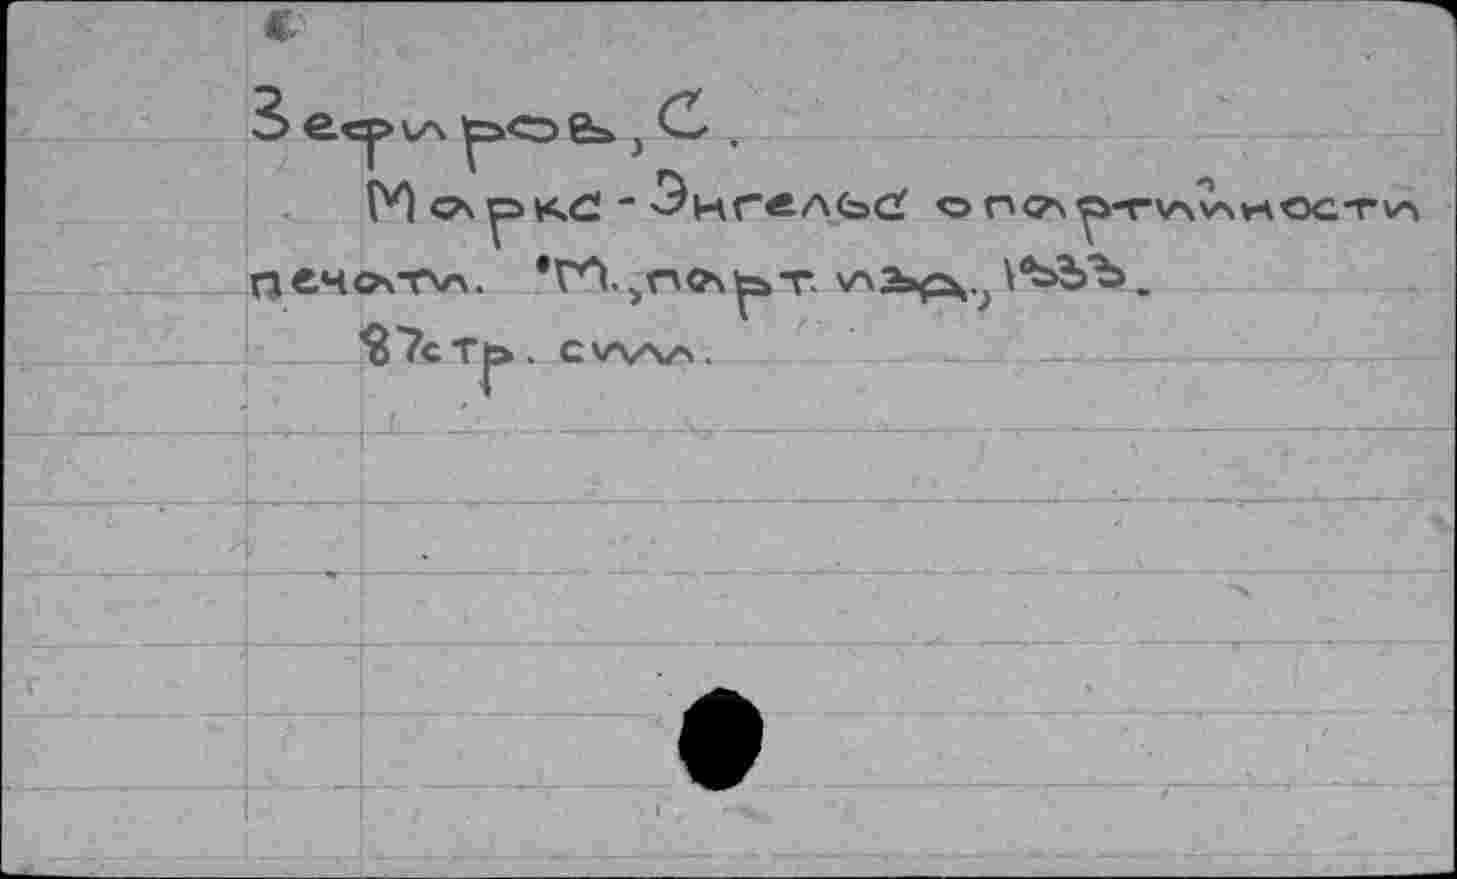 Зефиров, С.
Маркс - Энгельс о партийности
печати. М., парт. изд., 1933.
87 стр. силл.